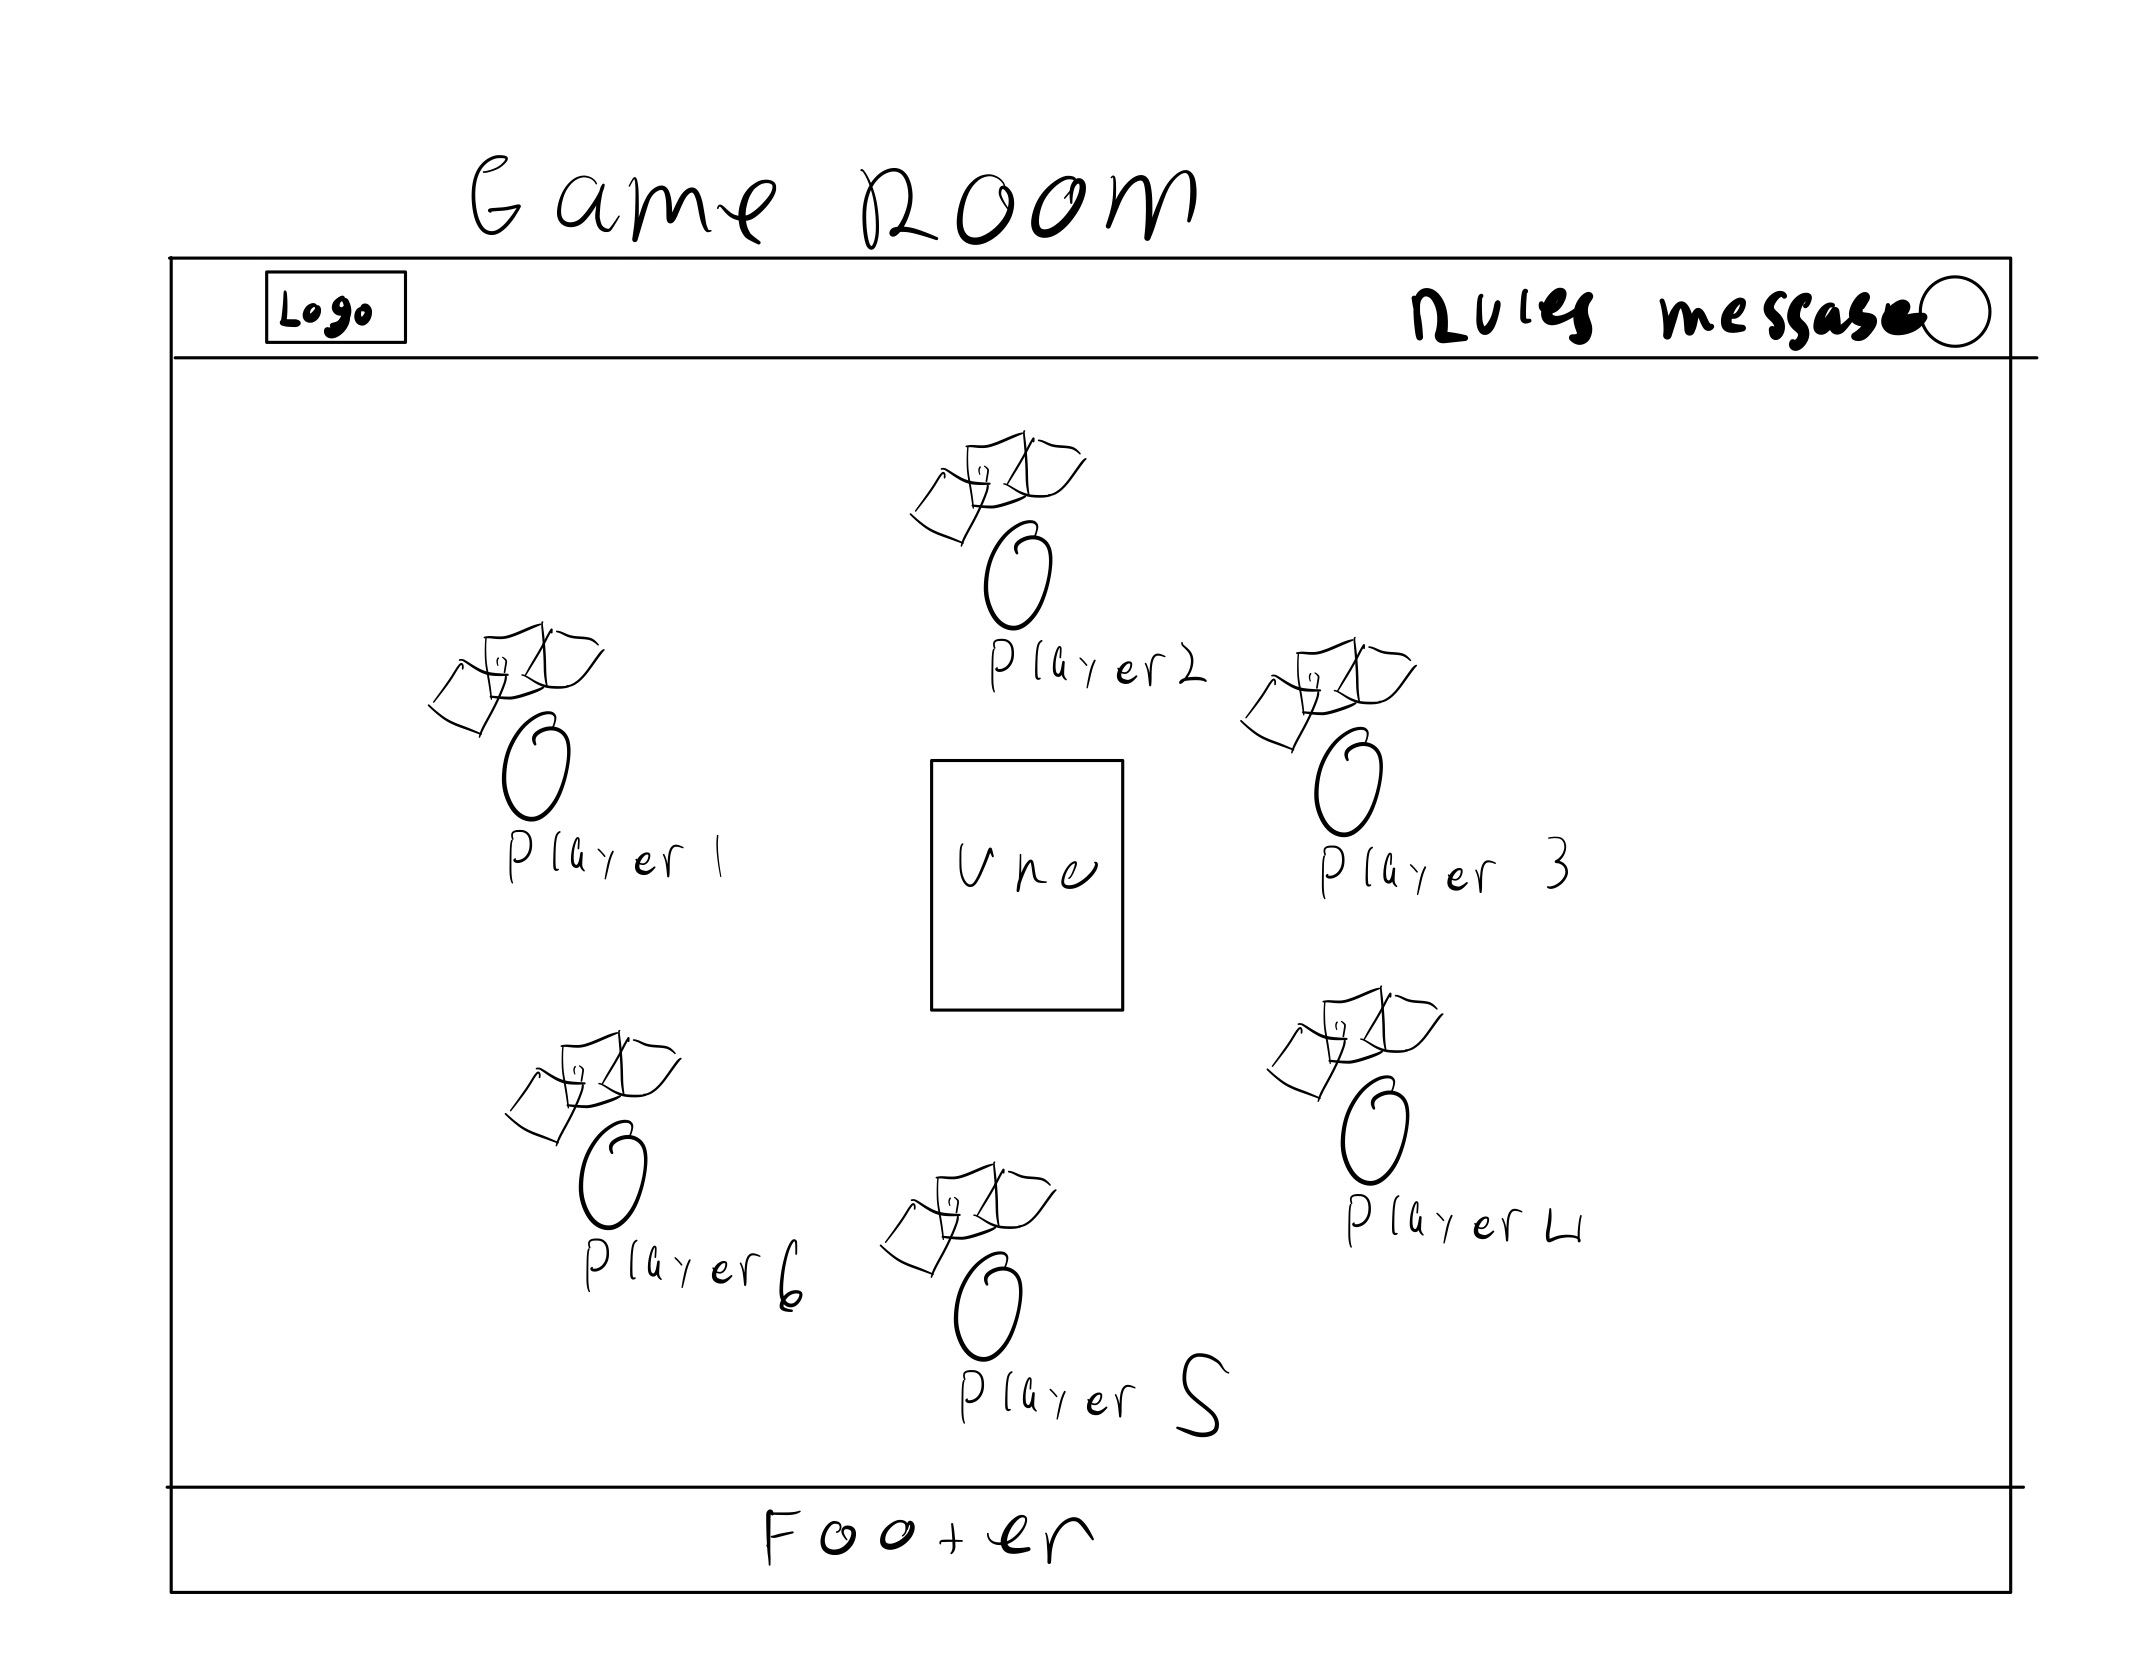 Game Room
Logo
Rules message
Player 2
Player 1
Player 3
Uno
Player 4
Player 6
Player 5
Footer